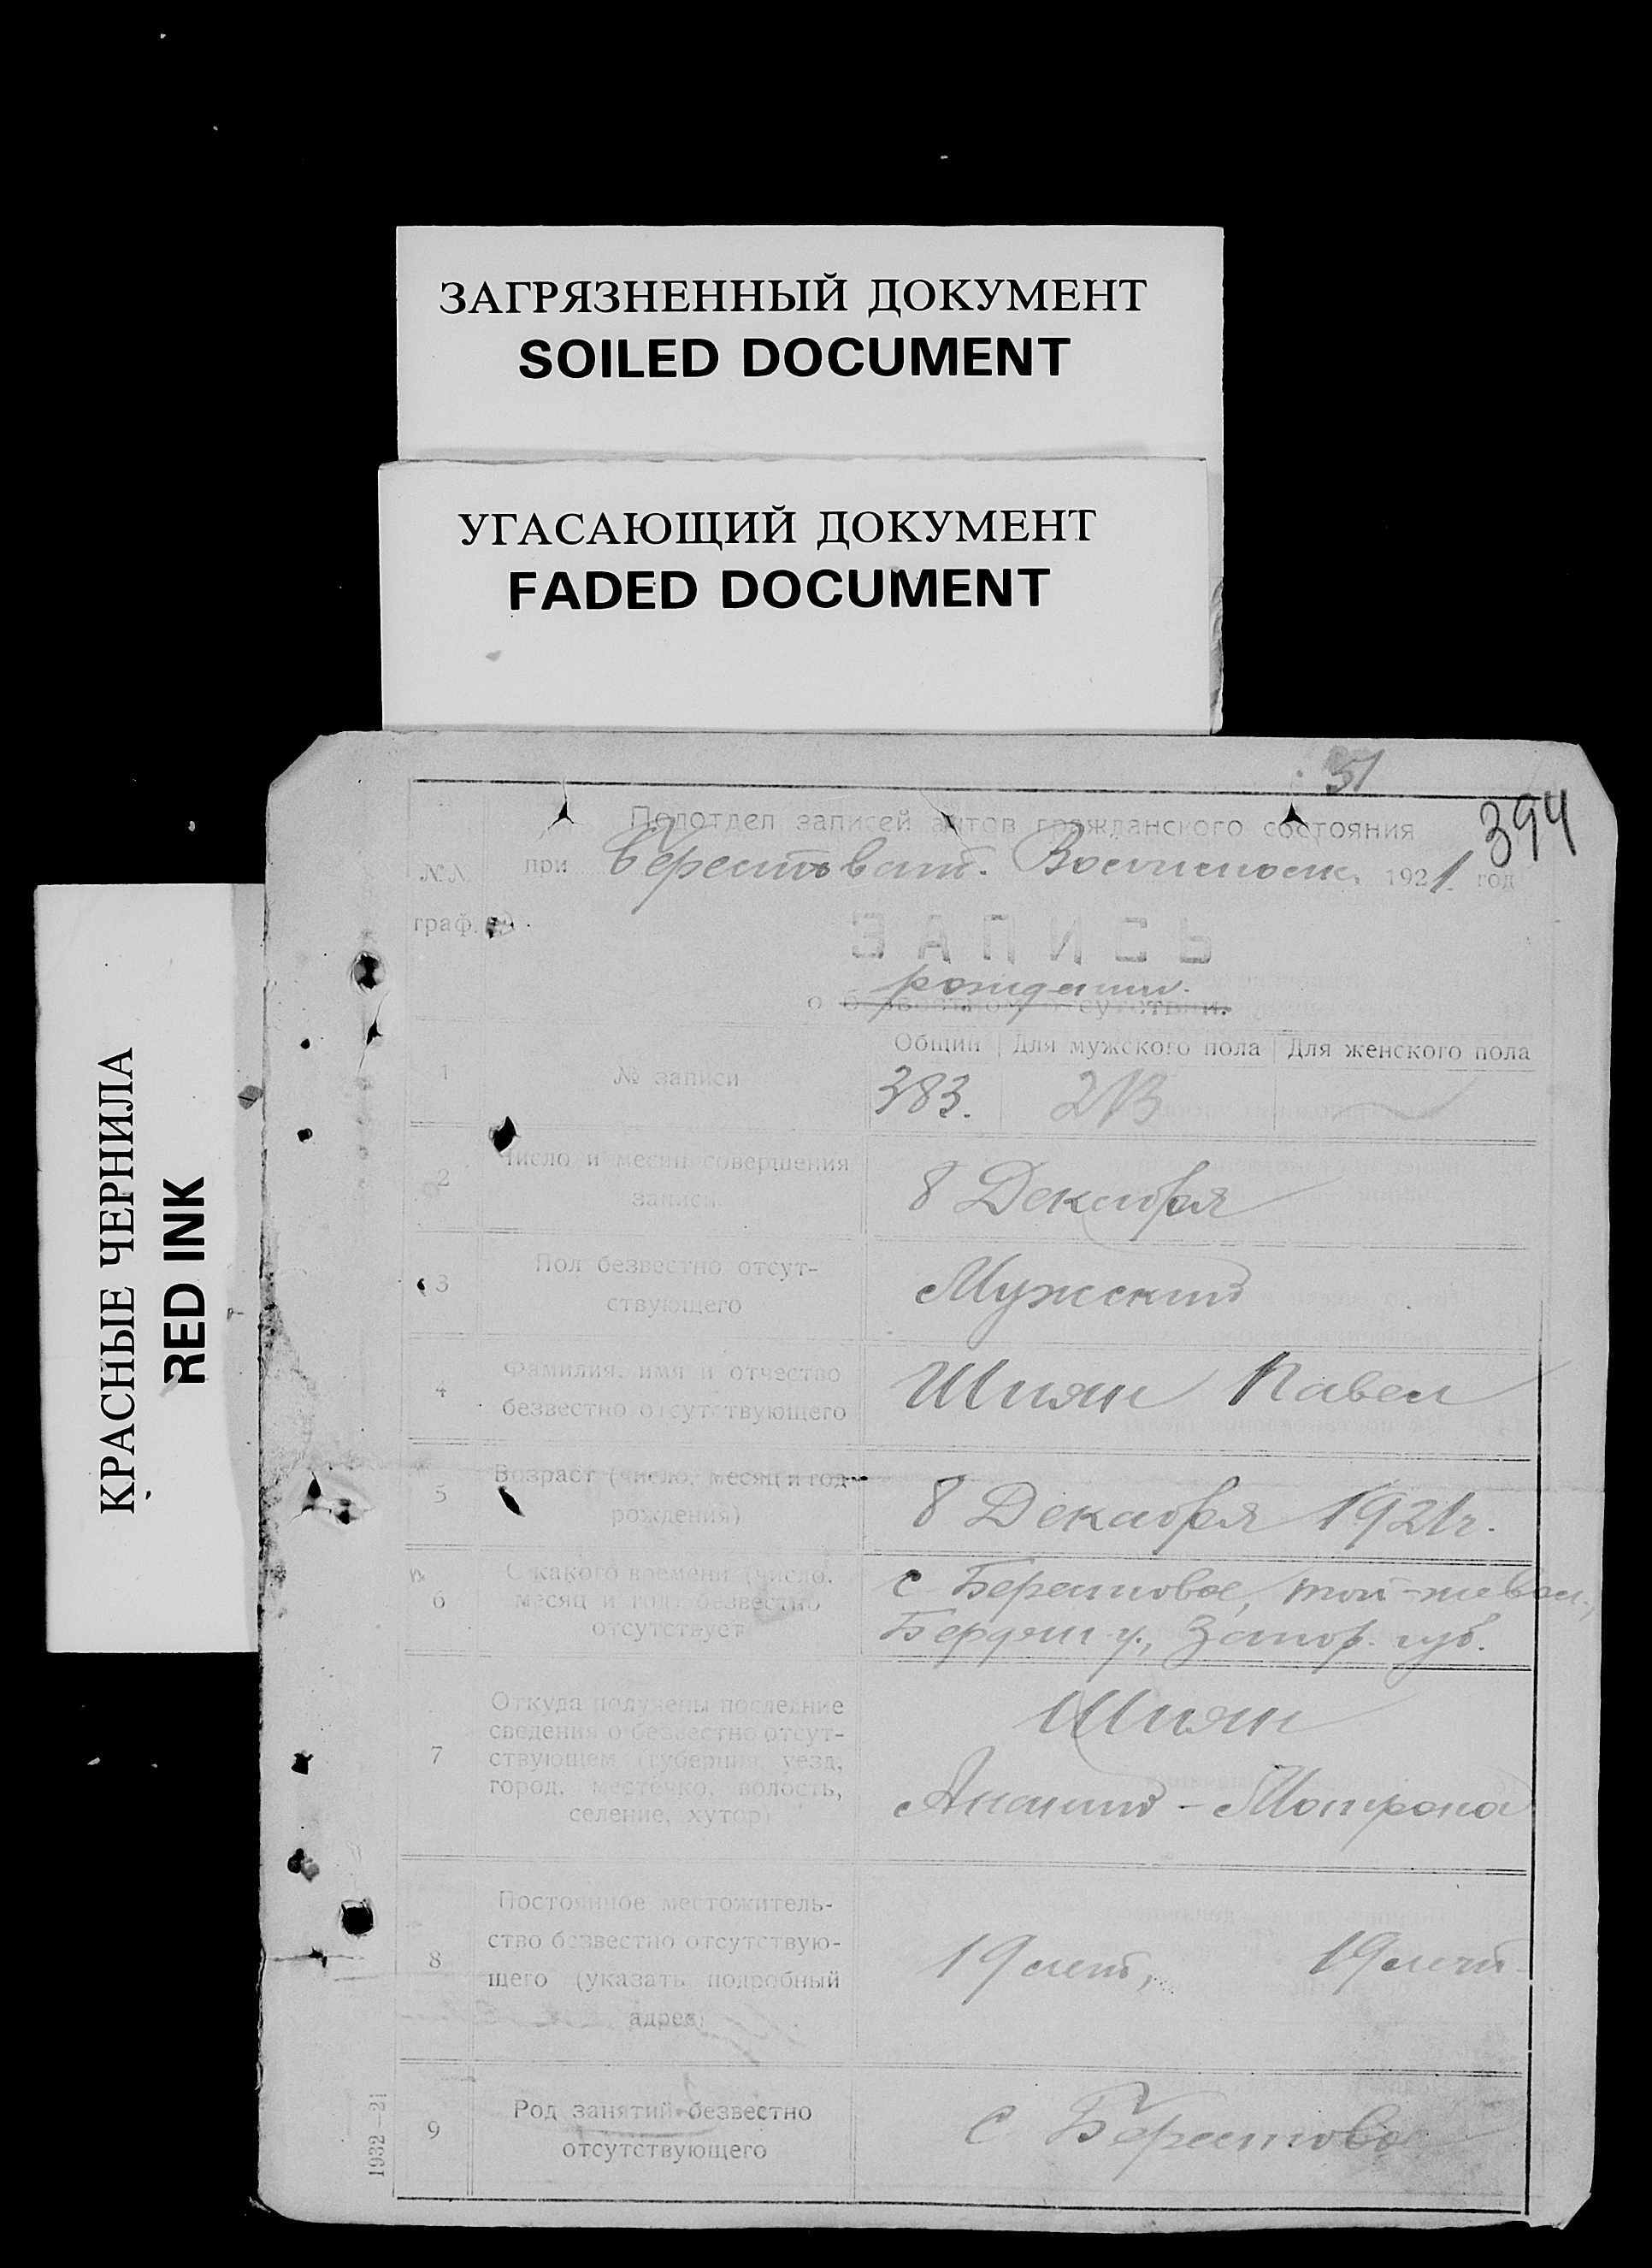 ЗАГРЯЗНЕННЫЙ ДОКУМЕНТ
SOILED DOCUMENT
УГАСАЮЩИЙ ДОКУМЕНТ
FADED DOCUMENT
КРАСНЫЕ ЧЕРНИЛА
RED INK
31
394
Подотдел записей актов гражданского состояния
№№ граф.
при Берестоват. 1921 год
ЗАПИСЬ
рождении.
о безвестном отсутствии.
Общий Для мужского пола Для женского пола
1 № записи 383. 213
2 Число и месяц совершения
записи 8 Декабря
3 Пол безвестно отсут-
ствующего Мужский
4 Фамилия, имя и отчество
безвестно отсутствующего Шиян Павел
5 Возраст (число, месяц и год
рождения) 8 Декабря 1921 г.
6 С какого времени (число,
месяц и год) безвестно
отсутствует
с Берестовое, той-же вол.,
Бердян у., Запор. губ.
7 Откуда получены последние
сведения о безвестно отсут-
ствующем (губерния, уезд,
город, местечко, волость,
селение, хутор)
Шиян
Ананий - Матрона
8 Постоянное местожитель-
ство безвестно отсутствую-
щего (указать подробный
адрес)
19 лет, 19 лет
9 Род занятий безвестно
отсутствующего
с Берестовое
1932-21